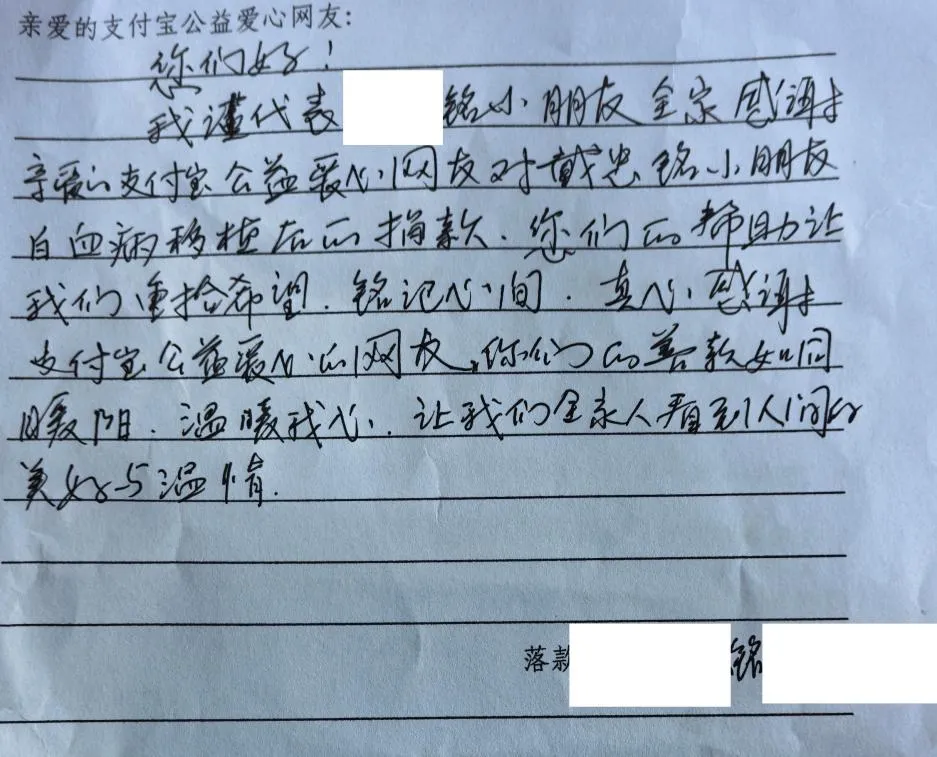 亲爱的支付宝公益爱心网友:
您们好!
我谨代表 铭小朋友全家感谢
亲爱的支付宝公益爱心网友对戴忠铭小朋友
白血病移植后的捐款.您们的帮助让
我们重拾希望.铭记心间.真心感谢
支付宝公益爱心的网友,你们的善款如同
暖阳.温暖我心.让我们全家人看到人间的
美好与温情.
落款 铭